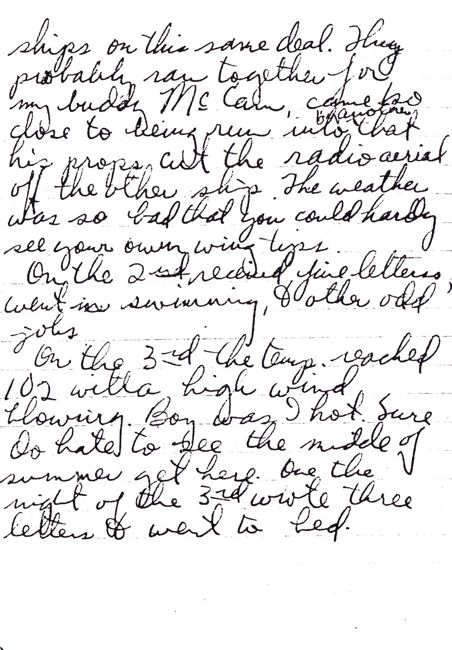 ships on this same deal. They
probably ran together for
my buddy McCam, came so
close to being run into by another that
his props cut the radio aerial
off the other ship. The weather
was so bad that you could hardy
see your own wing tips.
On the 2nd, received five letters,
went in swimming, & other odd
jobs
On the 3rd the temp. reached
102 with a high wind
blowing. Boy was I hot. Sure
do hate to see the middle of
summer get here. One the
night of the 3rd wrote three
letters & went to bed.